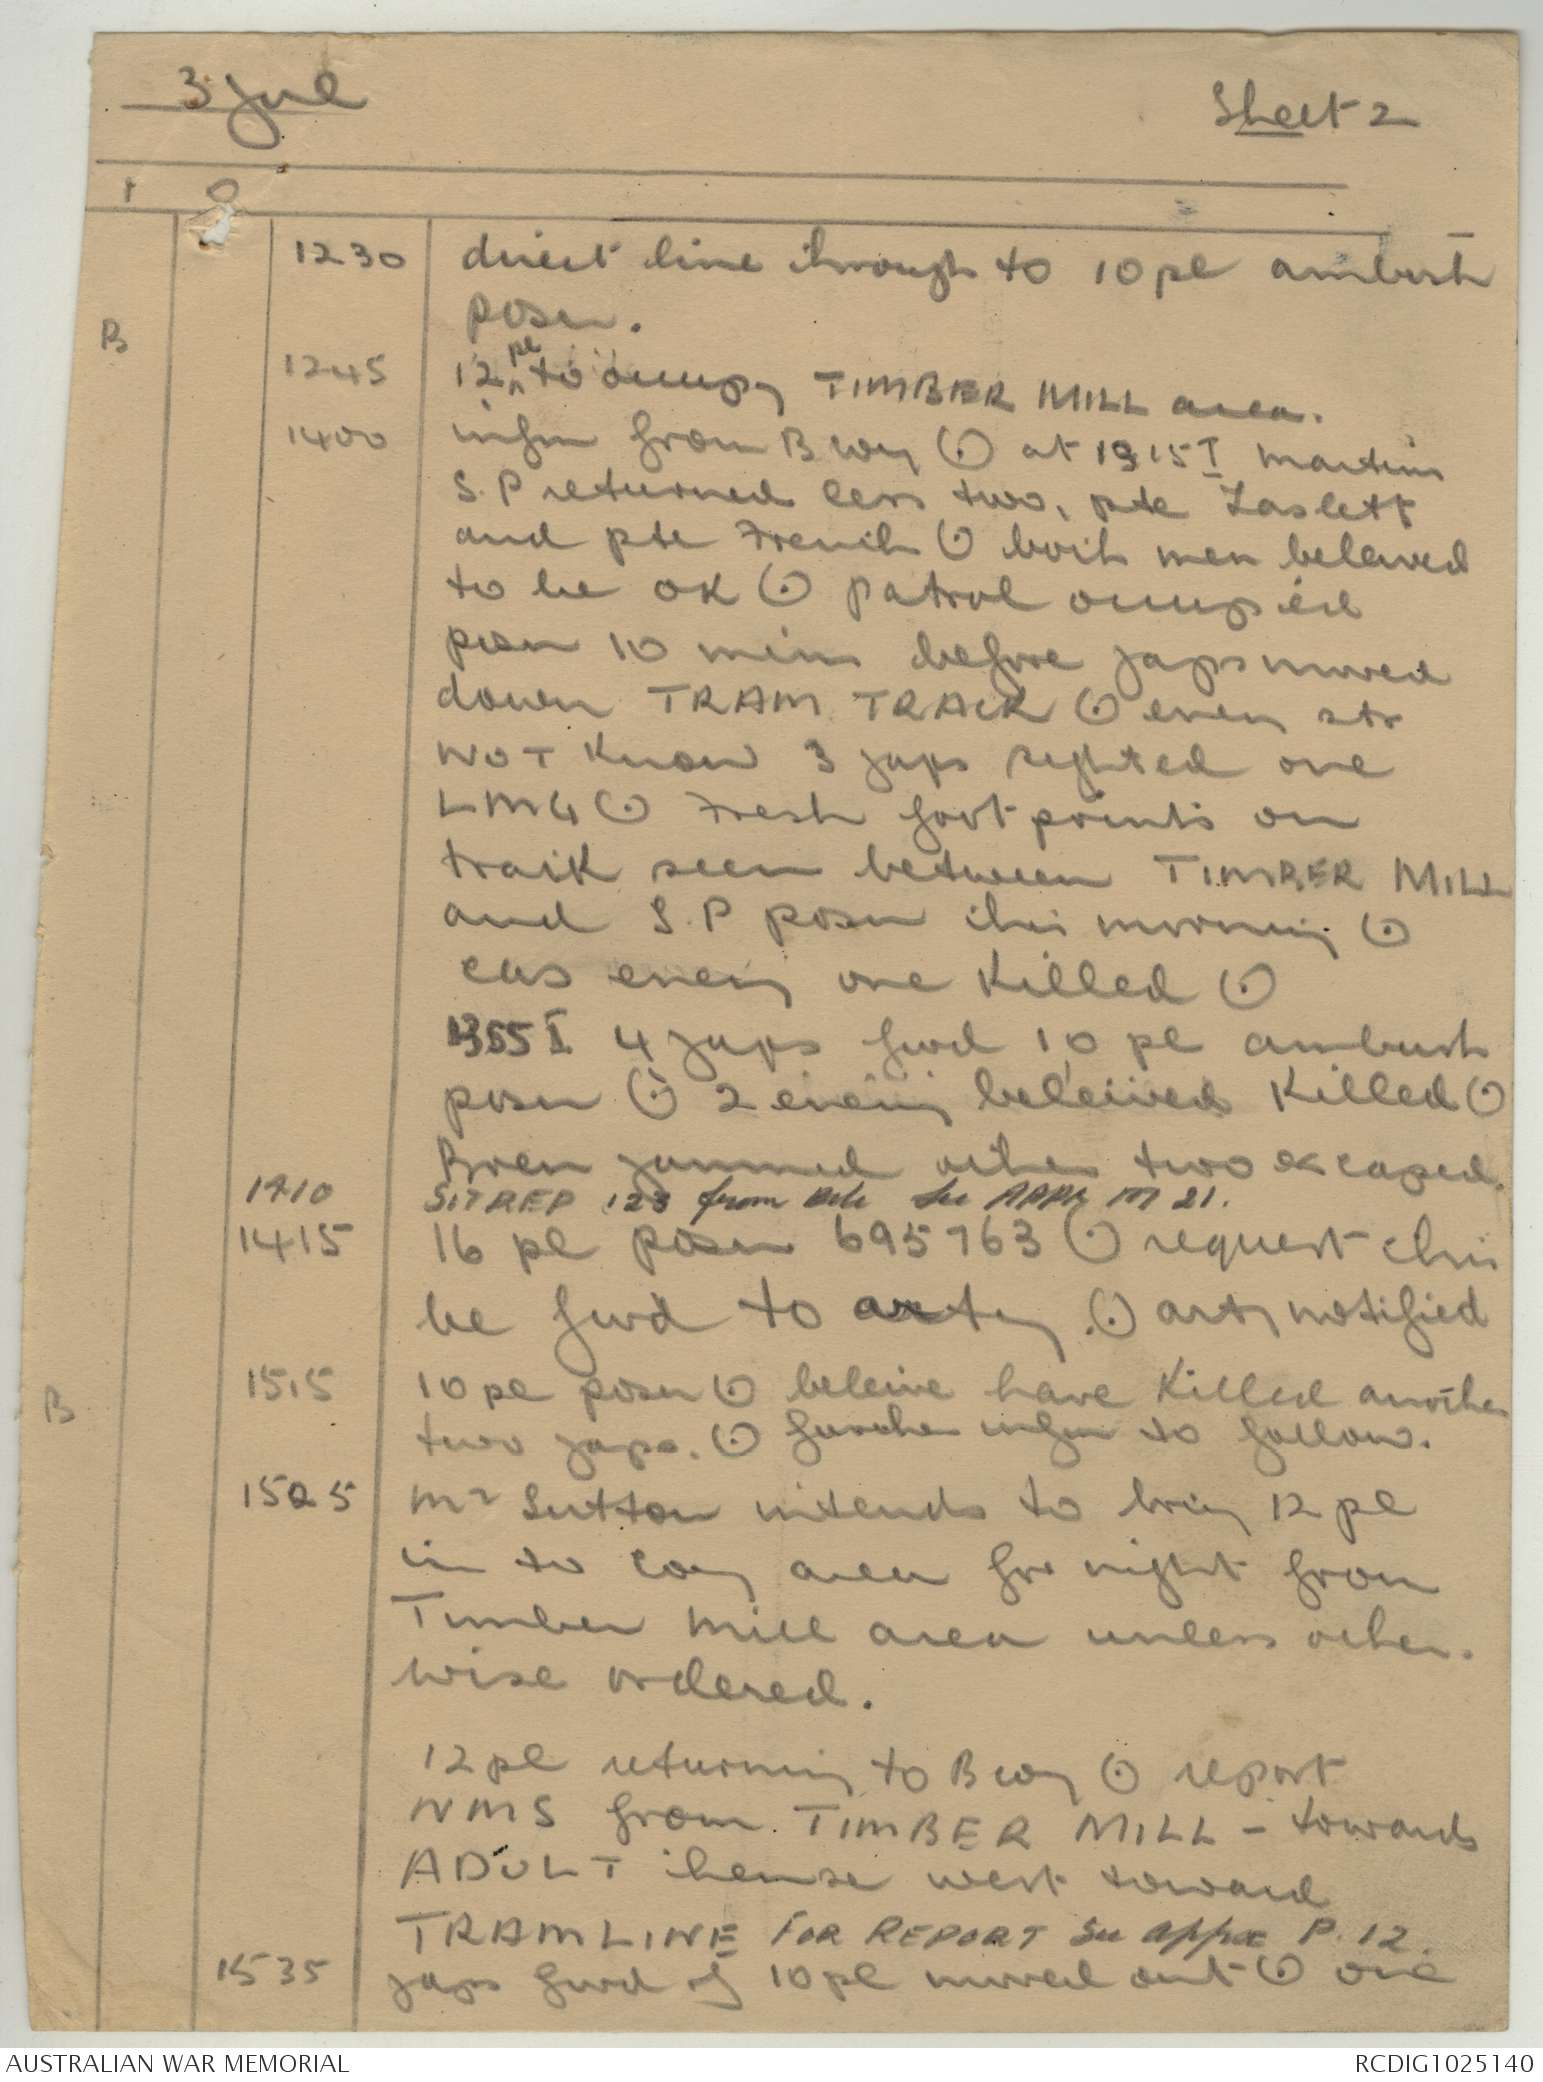 3 Jul
Sheet 2
1 0
1230 direct line through to 10 pl ambush
posn.
B
1245 12 pl to occupy TIMBER MILL area.
1400 infm from B coy ⊙ at 1315 I Martins
S.P returned less two, pte Laslett
and pte French ⊙ both men beleived
to be OK ⊙ Patrol occupied
posn 10 mins before japs moved
down TRAM TRACK ⊙ enemy str
NOT Known 3 japs sighted one
LMG ⊙ Fresh foot prints on
track seen between TIMBER MILL
and S.P posn this morning ⊙
cas enemy one Killed ⊙
1355 I 4 japs fwd 10 pl ambush
posn ⊙ 2 enemy beleived Killed ⊙
Bren jammed other two escaped.
1410 SITREP 123 from Bde See APPX M 21.
1415 16 pl posn 695763 ⊙ request this
be fwd to arty ⊙ arty notified
B 1515 10 pl posn ⊙ beleive have Killed another
two japs. ⊙ further infm to follow.
1525 Mr Sutton intends to bring 12 pl
in to coy area for night from
Timber Mill area unless other-
wise ordered.
12 pl returning to B coy ⊙ report
NMS from TIMBER MILL - towards
ADULT thense west toward
TRAMLINE FOR REPORT See appx P. 12.
1535 japs fwd of 10 pl moved out ⊙ one
AUSTRALIAN WAR MEMORIAL
RCDIG1025140